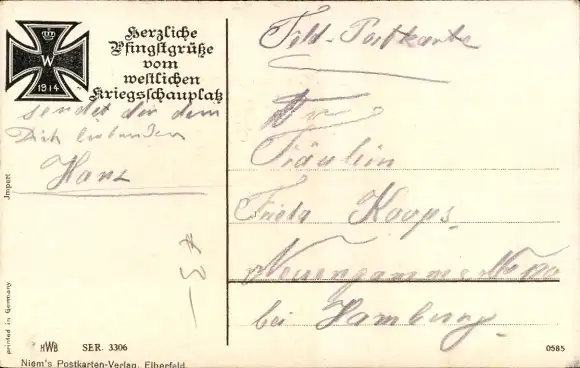 W
1914
Herzliche
Pfingstgrüße
vom
westlichen
Kriegsschauplatz
sendet dir dein
Dich liebender
Hans
Feld-Postkarte
Fräulein
Frieda Koops
Neuengamme
bei Hamburg
Import
printed in Germany
HWB SER. 3306
Niem's Postkarten-Verlag, Elberfeld.
0585